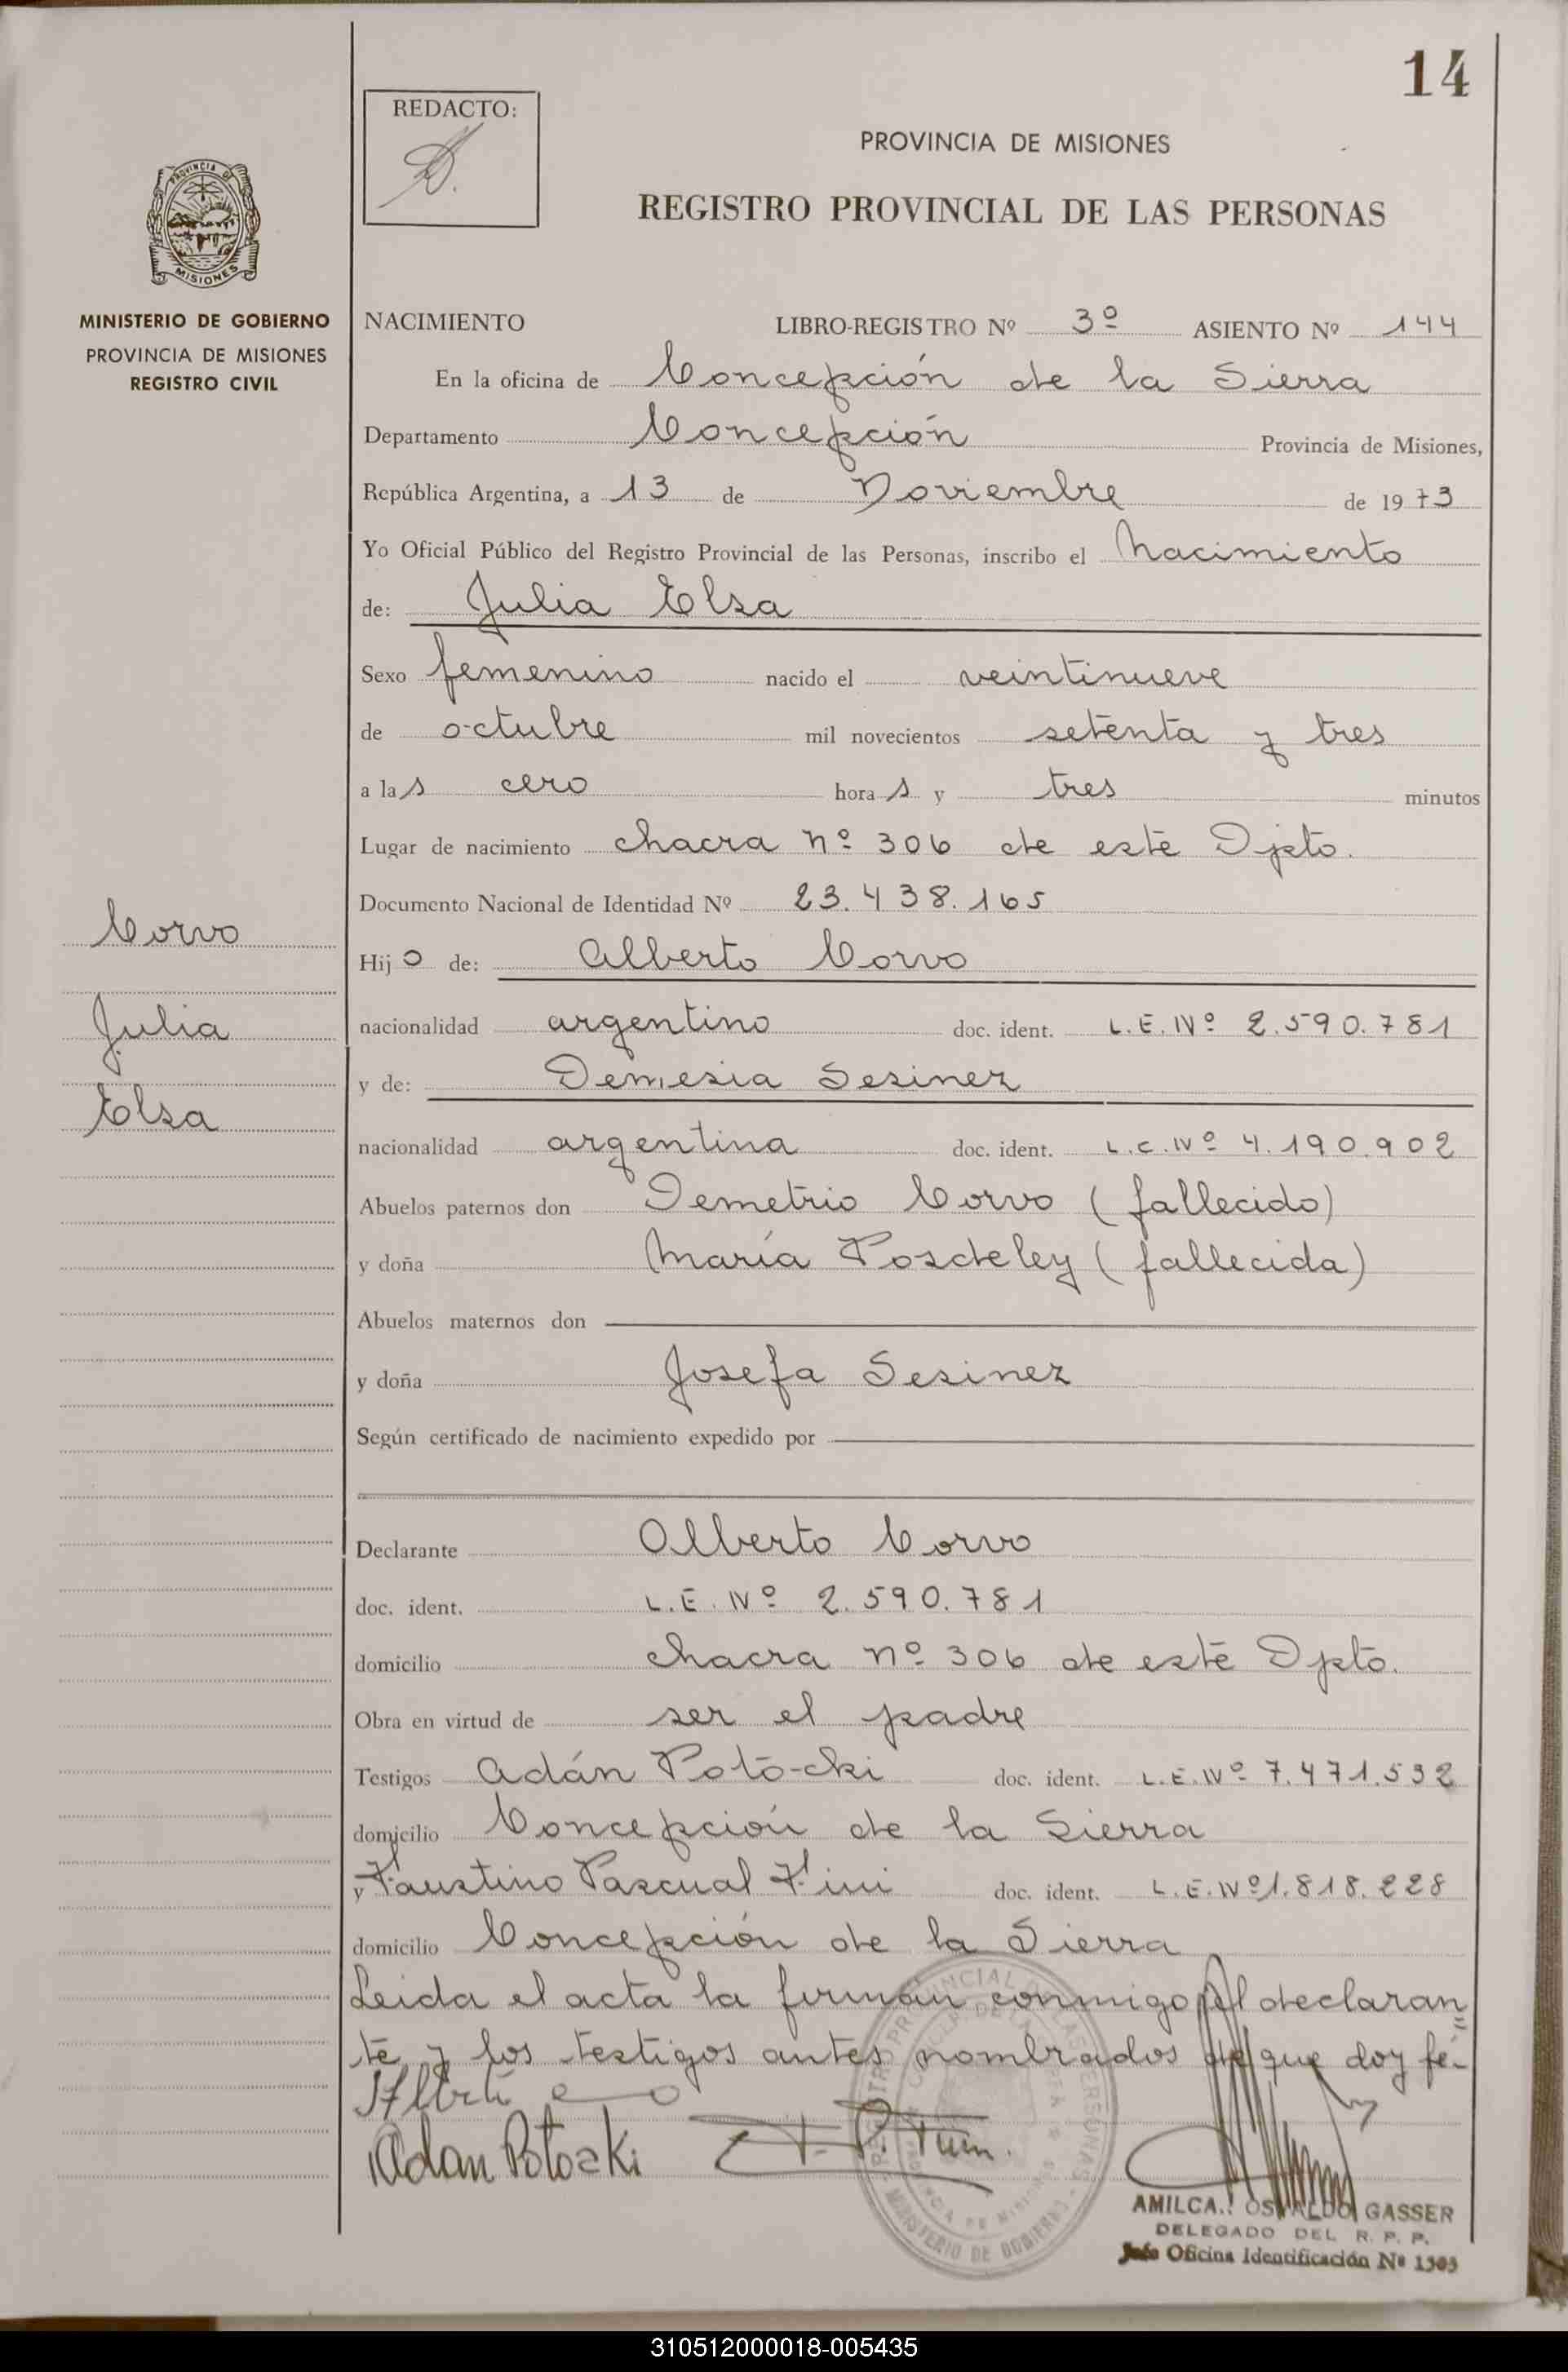 14
REDACTO:
PROVINCIA DE MISIONES
REGISTRO PROVINCIAL DE LAS PERSONAS
PROVINCIA DE
MISIONES
MINISTERIO DE GOBIERNO
PROVINCIA DE MISIONES
REGISTRO CIVIL
NACIMIENTO LIBRO-REGISTRO Nº 3º ASIENTO Nº 144
En la oficina de Concepción de la Sierra
Departamento Concepción Provincia de Misiones,
República Argentina, a 13 de Noviembre de 1973
Yo Oficial Público del Registro Provincial de las Personas, inscribo el Nacimiento
de: Julia Elsa
Sexo femenino nacido el veintinueve
de octubre mil novecientos setenta y tres
a las cero horas y tres minutos
Lugar de nacimiento chacra nº 306 de este Dpto.
Documento Nacional de Identidad Nº 23.438.165
Corvo
Julia
Elsa
Hijo de: Alberto Corvo
nacionalidad argentino doc. ident. L.E. Nº 2.590.781
y de: Demesia Sesinez
nacionalidad argentina doc. ident. L.C. Nº 4.190.902
Abuelos paternos don Demetrio Corvo (fallecido)
y doña María Posdeley (fallecida)
Abuelos maternos don
y doña Josefa Sesinez
Según certificado de nacimiento expedido por
Declarante Alberto Corvo
doc. ident. L.E. Nº 2.590.781
domicilio chacra nº 306 de este Dpto.
Obra en virtud de ser el padre
Testigos Adán Potocki doc. ident. L.E. Nº 7.471.532
domicilio Concepción de la Sierra
y Faustino Pascual doc. ident. L.E. Nº 1.818.228
domicilio Concepción de la Sierra
Leida el acta la firman conmigo el declaran
te y los testigos antes nombrados de que doy fé-
Adan Potocki
AMILCAR OSVALDO GASSER
DELEGADO DEL R. P. P.
Jefe Oficina Identificación Nº 1303
310512000018-005435